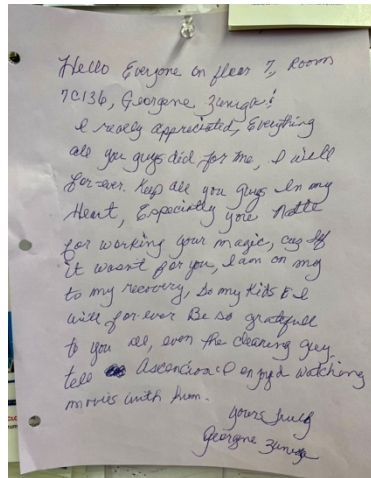 Hello Everyone on floor 7, Room
7C136, Georgene Zuniga!
I really appreciated, Everything
all you guys did for me, I will
for-ever keep all you guys In my
Heart, Especially you
for working your magic, cuz If
it wasn't for you, I am on my
to my recovery, So my Kids & I
will for-ever Be so gratefull
to you all, even the cleaning guy
tell I enjoyd watching
movies with him.
yours truly
Georgene Zuniga